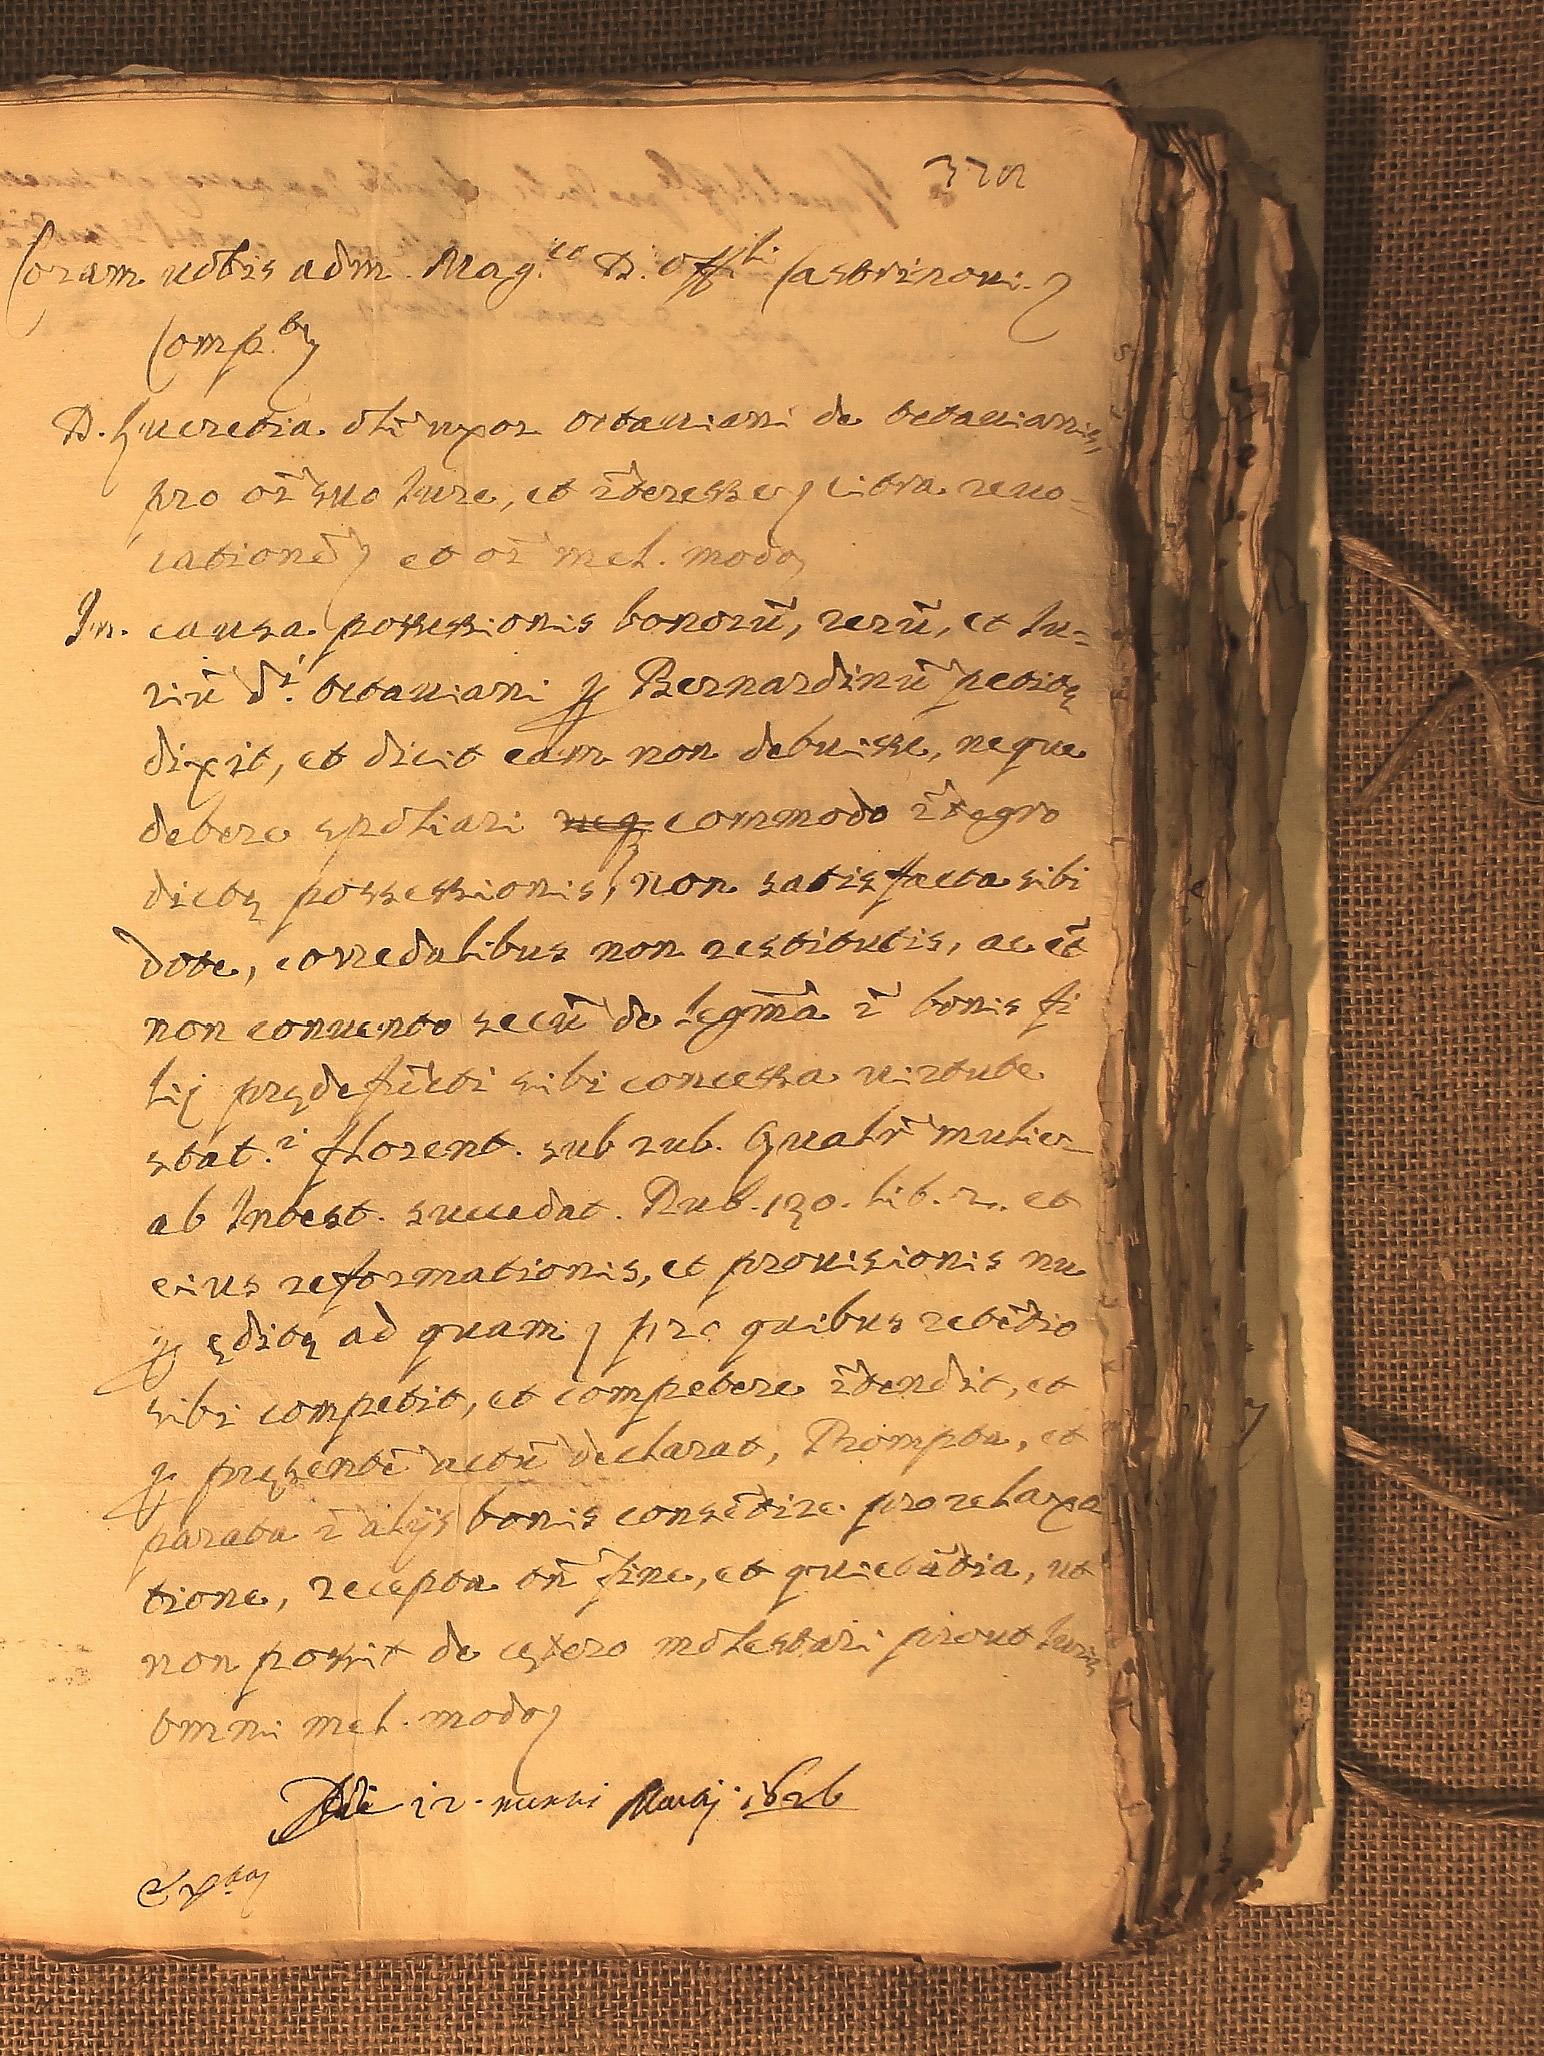 3702
Coram uobis adm. Mag.co D. Offli Castrinoui.
Comp.
D. Lucretia olĩ uxor octauiani de octauianis,
pro oĩ suo Iure, et ĩteresse citra reuo-
cationẽ et oĩ mel. modo
In causa possessionis bonorũ, rerũ, et Iu-
riũ dĩ octauiani Bernardinũ petitę
dixit, et dicit eam non debuisse, neque
debere spoliari neq commodo ĩtegro
dictę possessionis, non satisfacta sibi
dote, corredalibus non restitutis, ac ẽt
non conuento secũ de legmã ĩ bonis fi
lij prędefũcti sibi concessa uirtute
stat.i florent. sub rub. Qualr mulier
ab Intest. succedat. Rub. 130. lib. 2. et
eius reformationis, et prouisionis nu
ęditę ad quam pro quibus retẽtio
sibi competit, et competere ĩtendit, et
pręsentẽ actũ declarat, Prompta, et
parata ĩ alijs bonis consẽtire pro relaxa
tione, recepta tñ fine, et quietãtia, ut
non possit de cętero molestari prout Iuris
omni mel. modo
Die 12. mensi Maij 1626